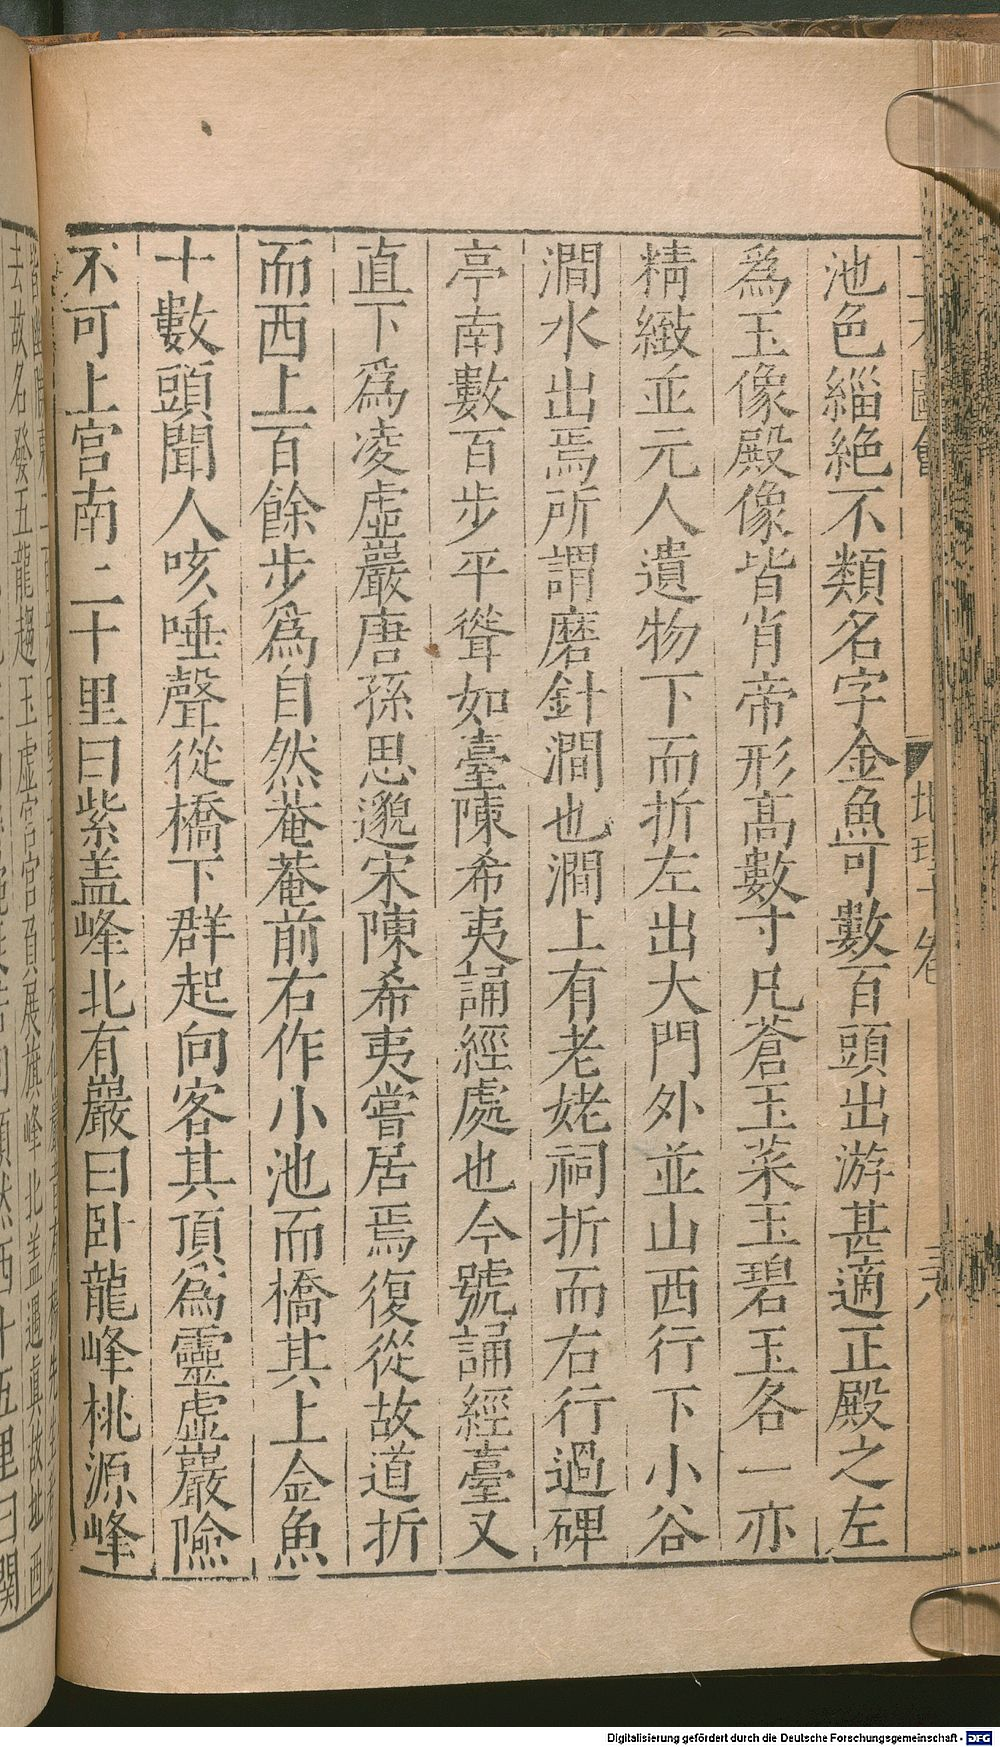 池色緇絶不類名字金魚可數百頭出游甚適正殿之左
爲玉像殿像皆肖帝形高數寸凡蒼玉菜玉碧玉各一亦
精緻並元人遺物下而折左出大門外並山西行下小谷
澗水出焉所謂磨針澗也澗上有老姥祠折而右行過碑
亭南數百步平聳如臺陳希夷誦經處也今號誦經臺又
直下爲凌虛巖唐孫思邈宋陳希夷嘗居焉復從故道折
而西上百餘步爲自然菴菴前右作小池而橋其上金魚
十數頭聞人咳唾聲從橋下群起向客其頂爲靈虛巖險
不可上宮南二十里曰紫盖峰北有巖曰卧龍峰桃源峰
去故名發五龍趨玉虛宮宮負展旗峰北盖遇真故址西
Digitalisierung gefördert durch die Deutsche Forschungsgemeinschaft - DFG